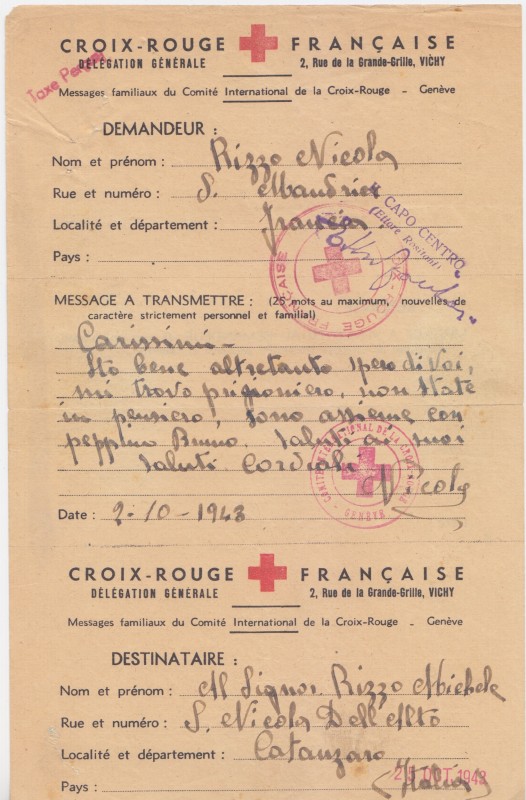 CROIX-ROUGE FRANÇAISE
DÉLÉGATION GÉNÉRALE 2, Rue de la Grande-Grille, VICHY
Taxe Perçue
Messages familiaux du Comité International de la Croix-Rouge - Genève
DEMANDEUR :
Nom et prénom : Rizzo Nicola
Rue et numéro : S. Mandrier
Localité et département : Francia
IL CAPO CENTRO
Pays :
CROIX-ROUGE FRANÇAISE
MESSAGE A TRANSMETTRE : (25 mots au maximum, nouvelles de
caractère strictement personnel et familial)
Carissimi -
Stò bene altretanto spero di Voi,
mi trovo prigioniero, non state
in pensiero, sono assieme con
peppino Bruno. Saluti ai suoi
Saluti Cordiali
Nicola
COMITÉ INTERNATIONAL DE LA CROIX-ROUGE - GENÈVE
Date : 2-10-1943
CROIX-ROUGE FRANÇAISE
DÉLÉGATION GÉNÉRALE 2, Rue de la Grande-Grille, VICHY
Messages familiaux du Comité International de la Croix-Rouge - Genève
DESTINATAIRE :
Nom et prénom : Al Signor Rizzo Michele
Rue et numéro : S. Nicola Dell'Alto
Localité et département : Catanzaro
Pays : (Italia)
25 OCT. 1943